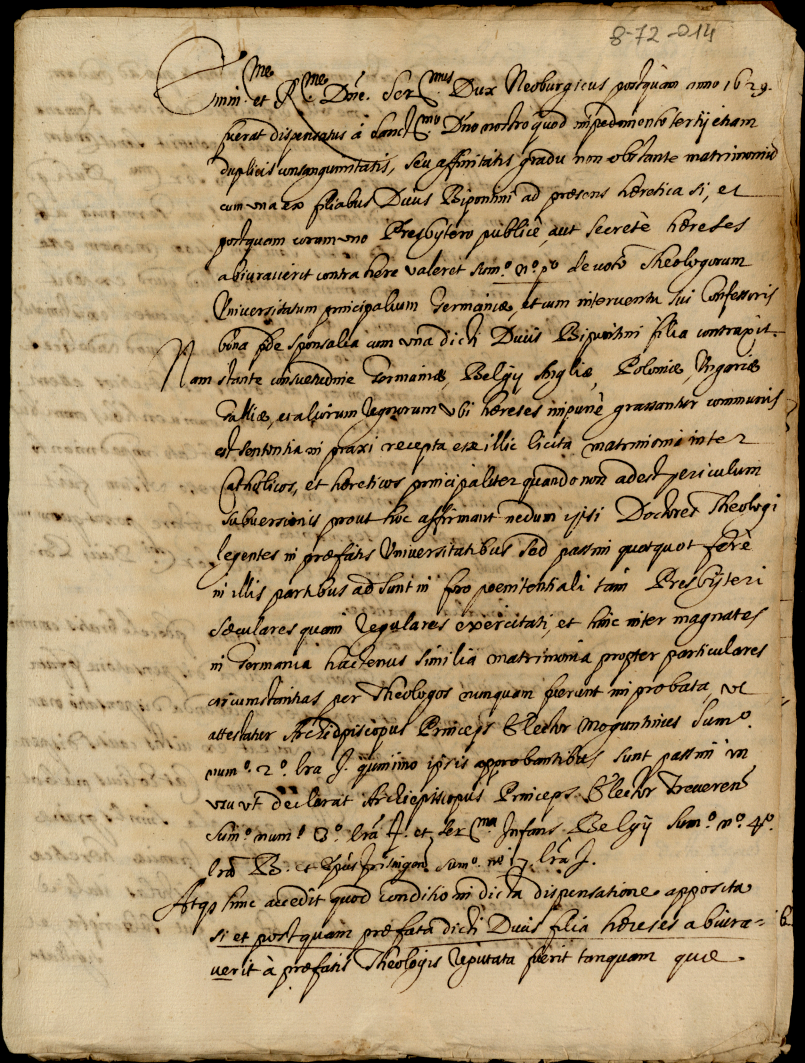 8-72-014
Emin.me et R.me Dne. Ser.mus Dux Neoburgicus postquam anno 1629.
fuerat dispensatus à Sanct.mo D'no nostro quod impedimento tertij etiam
duplicis consanguinitatis, seu affinitatis gradu non obstante matrimonio
cum una ex filiabus Ducis Bipontini ad præsens hæretica si, et
postquam coram uno Presbytero publicè, aut secretè hæreses
abiuraverit contrahere valeret Sum.o n.o p.o de voto Theologorum
Universitatum principalium Germaniæ, et cum interventu sui Confessoris
bona fide sponsalia cum una dicti Ducis Bipontini filia contraxit.
Nam stante consuetudine Germaniæ, Belgij Angliæ, Poloniæ, Ungariæ
Galliæ, et aliorum regnorum ubi hæreses impunè grassantur communis
est sententia in praxi recepta esse illic licita matrimonia inter
Catholicos, et hæreticos principaliter quando non adest periculum
subversionis prout hoc affirmant nedum ipsi Doctores Theologi
legentes in præfatis Universitatibus sed passim quotquot ferè
in illis partibus adsunt in foro poenitentiali tam Presbyteri
sæculares quam regulares exercitati, et hinc inter magnates
in Germania hactenus similia matrimonia propter particulares
circumstantias per Theologos nunquam fuerunt improbata, ut
attestatur Archiepiscopus Princeps Elector Moguntinus Sum.o
num.o 2.o lra J. quinimo ipsis approbantibus sunt passim in
usu ut declarat Archiepiscopus Princeps Elector Treveren
Sum.o num.o 3.o lra A. et Ser.ma Infans Belgij Sum.o n.o 4.o
lra B. et Epus sum.o n.o 7. lra J.
Atqe hinc accedit quod conditio in dicta dispensatione apposita
si et postquam præfata dicti Ducis filia hæreses abiura= B
verit à præfatis Theologis reputata fuerit tanquam quæ